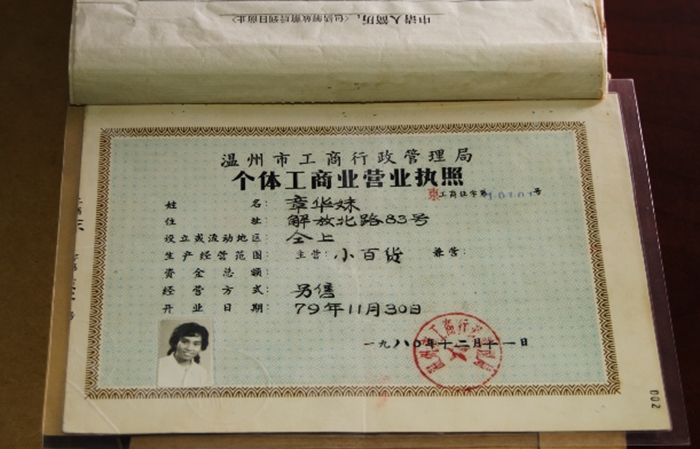 申请人简历，（包括解放前后到目前止）
温州市工商行政管理局
个体工商业营业执照
工商证字第10101号
姓名：章华妹
住址：解放北路83号
设立或流动地区：仝上
生产经营范围：主营：小百货 兼营：
资金总额：
经营方式：另售
开业日期：79年11月30日
一九八〇年十二月十一日
002